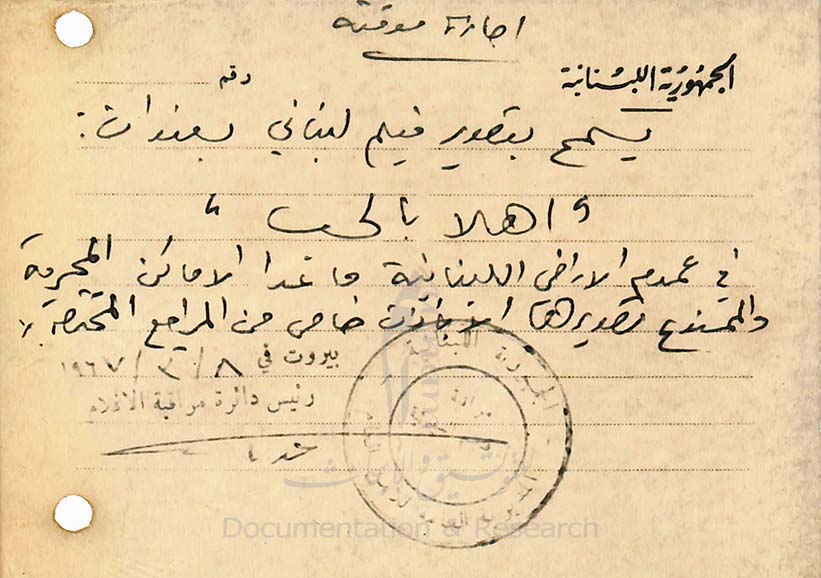 اجازة موقتة
الجمهورية اللبنانية
رقم
يسمح بتصوير فيلم لبناني بعنوان:
" اهلا بالحب "
في عموم الاراضي اللبنانية ما عدا الاماكن
والممنوع تصويرها الا باذن خاص من المراجع المختصة.
بيروت في ٨ / ٣ / ١٩٦٧
رئيس دائرة مراقبة الافلام
الجمهورية اللبنانية
مراقبة
التوثيق والأبحاث
Documentation & Research